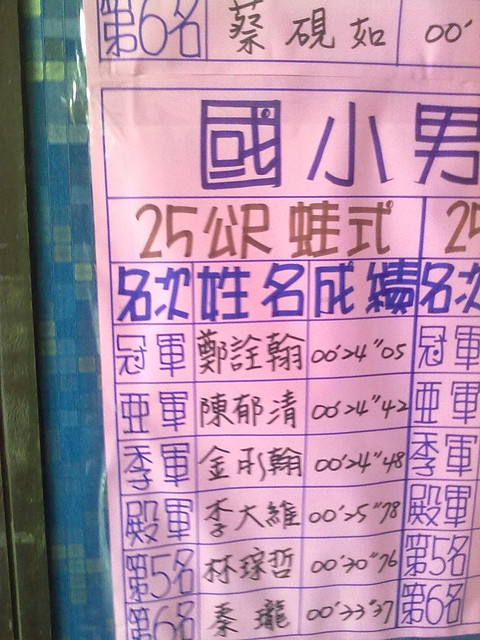 第6名 蔡硯如 00'
國小男
25公尺蛙式 25
名次 姓名 成績 名次
冠軍 鄭詮翰 00'24"05 冠軍
亞軍 陳郁清 00'24"42 亞軍
季軍 金彤翰 00'24"48 季軍
殿軍 李大維 00'25"78 殿軍
第5名 林瑔哲 00'30"76 第5名
第6名 秦瓏 00'33"37 第6名